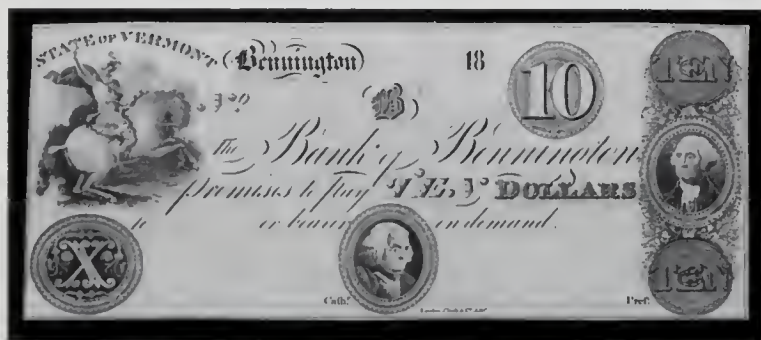 STATE OF VERMONT
Bennington 18
10
TEN
No
B
The Bank of Bennington
promises to pay TEN DOLLARS
to or bearer on demand.
X
TEN
Cashr. Prest.